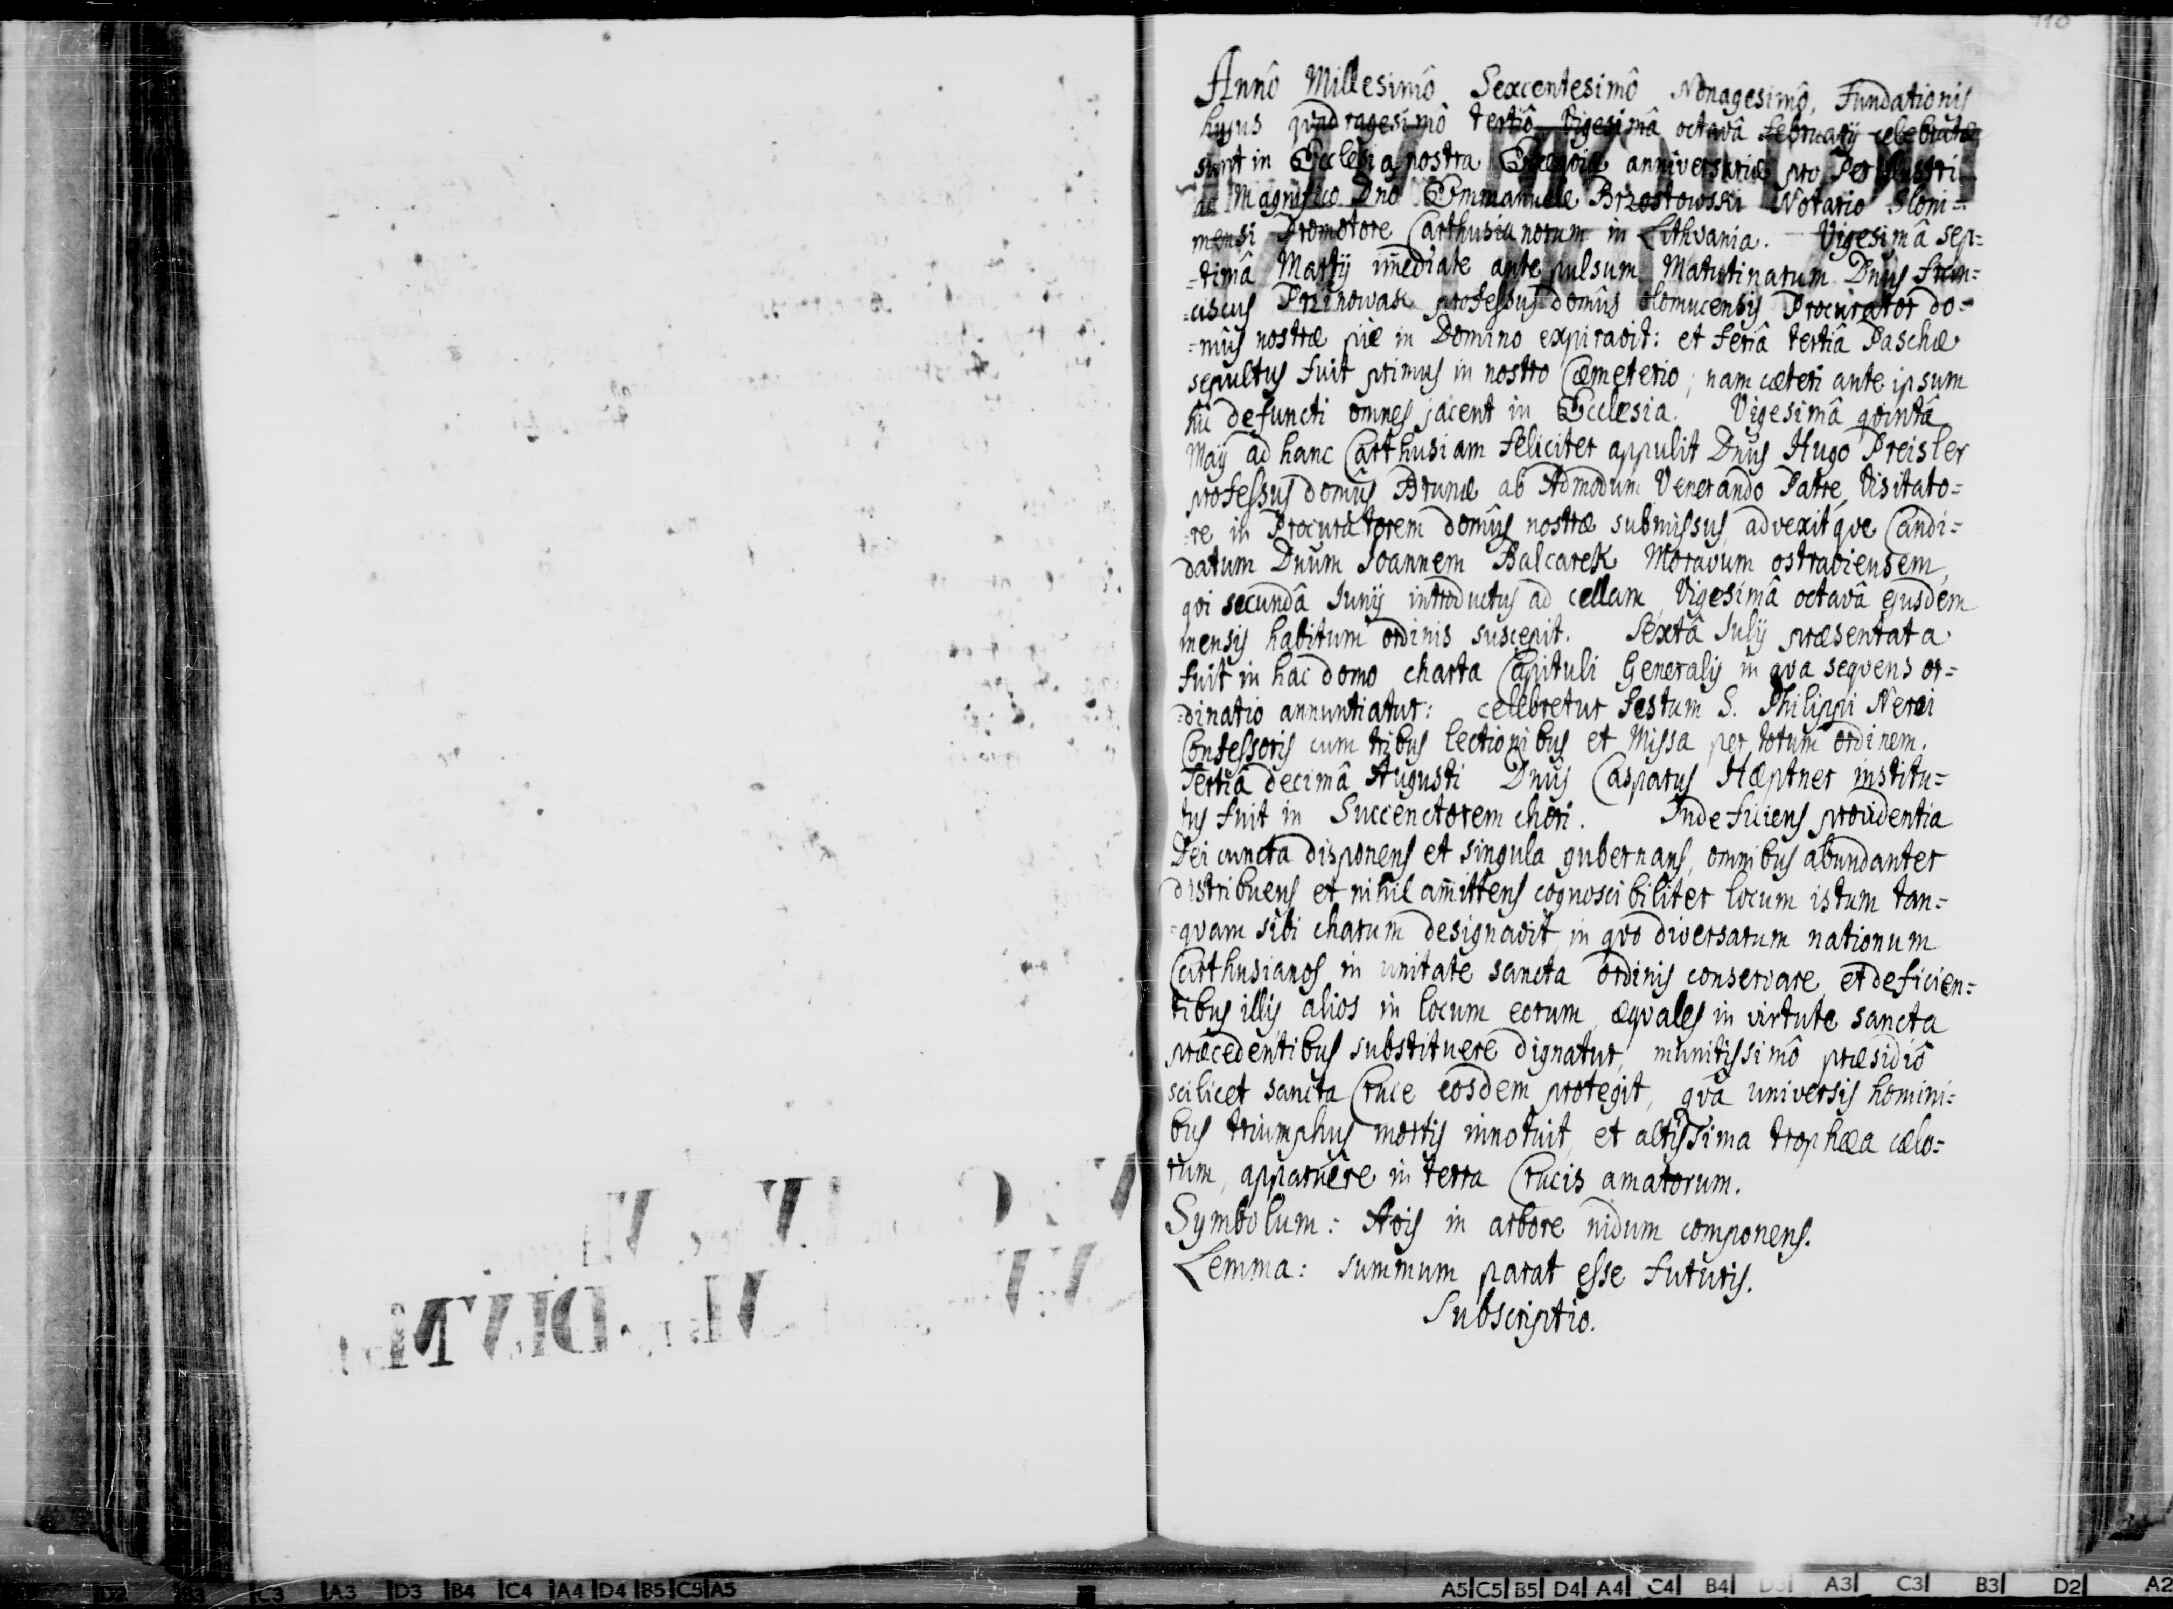 110
Annô Millesimô Sexcentesimô Nonagesimô, Fundationis
hujus quadragesimô tertiô Vigesimâ octavâ Februarij celebratæ
sunt in Ecclesia nostra Exequiæ anniversariæ pro Perillustri
ac Magnifico Dno Emmanuele Brzostowski Notario Sloni=
mensi Promotore Carthusianorum in Lithvania. Vigesimâ sep=
=timâ Martij im̄ediate ante pulsum Matutinarum Dnus Fran=
=ciscus professus domûs Olomucensis Procurator do=
=mûs nostræ piè in Domino expiravit: et feriâ tertiâ Paschæ
sepultus fuit primus in nostro Cæmeterio; nam cæteri ante ipsum
hic defuncti omnes jacent in Ecclesia. Vigesimâ qvintâ
Maij ad hanc Carthusiam feliciter appulit Dnus Hugo Preisler
professus domûs Brunæ ab Admodum Venerando Patre Visitato=
=re in Procuratorem domûs nostræ submissus, advexitqve Candi=
datum Dnum Joannem Balcarek Moravum ostraviensem,
qvi secundâ Junij introductus ad cellam, Vigesimâ octavâ ejusdem
mensis habitum ordinis suscepit. Sextâ Julij præsentata
fuit in hac domo charta Capituli Generalis in qva seqvens or=
=dinatio annuntiatur: celebretur festum S. Philippi Nerei
Confessoris cum tribus lectionibus et Missa per totum ordinem.
Tertiâ decimâ Augusti Dnus Casparus Hæptner institu=
tus fuit in Succentorem chori. Indeficiens providentia
Dei cuncta disponens et singula gubernans, omnibus abundanter
distribuens et nihil am̄ittens cognoscibiliter locum istum tan=
=qvam sibi charum designavit, in qvo diversarum nationum
Carthusianos in unitate sancta ordinis conservare, et deficien=
tibus illis alios in locum eorum æqvales in virtute sancta
præcedentibus substituere dignatur, munitissimô præsidiô
scilicet sancta Cruce eosdem protegit, qvâ universis homini=
bus triumphus mortis innotuit, et altissima trophæa cælo=
rum, apparuêre in terra Crucis amatorum.
Symbolum: Avis in arbore nidum componens.
Lemma: summum parat esse futuris.
Subscriptio.
D2 B3 C3 A3 D3 B4 C4 A4 D4 B5 C5 A5
A5 C5 B5 D4 A4 C4 B4 D3 A3 C3 B3 D2 A2